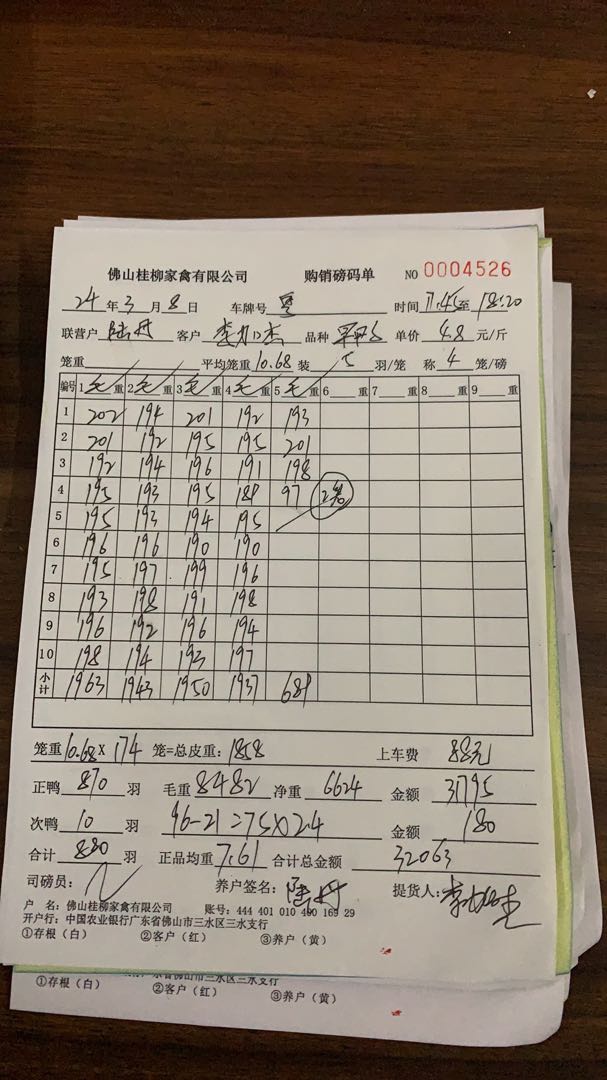 佛山桂柳家禽有限公司 购销磅码单 NO 0004526
24 年 3 月 8 日 车牌号 粤 时间 17:45 至 18:20
联营户 陆丹 客户 品种 单价 4.8 元/斤
笼重 平均笼重 10.68 装 5 羽/笼 称 4 笼/磅
编号 1 毛 重 2 毛 重 3 毛 重 4 毛 重 5 毛 重 6 重 7 重 8 重 9 重
1 202 194 201 192 193
2 201 192 195 195 201
3 192 194 196 191 198
4 195 193 195 189 97 2笼
5 195 193 194 195
6 196 196 190 190
7 195 197 199 196
8 193 198 191 198
9 196 192 196 194
10 198 194 193 197
小计 1963 1943 1950 1937 689
笼重 10.68 x 174 笼=总皮重: 1858 上车费 88元
正鸭 870 羽 毛重 8482 净重 6624 金额 31795
次鸭 10 羽 96-21=75x2.4 金额 180
合计 880 羽 正品均重 7.61 合计总金额 32063
司磅员: 养户签名: 陆丹 提货人:
户 名: 佛山桂柳家禽有限公司 账号: 444 401 010 400 169 29
开户行: 中国农业银行广东省佛山市三水区三水支行
①存根(白) ②客户(红) ③养户(黄)
东省佛山市三水区三水支行
①存根(白) ②客户(红) ③养户(黄)